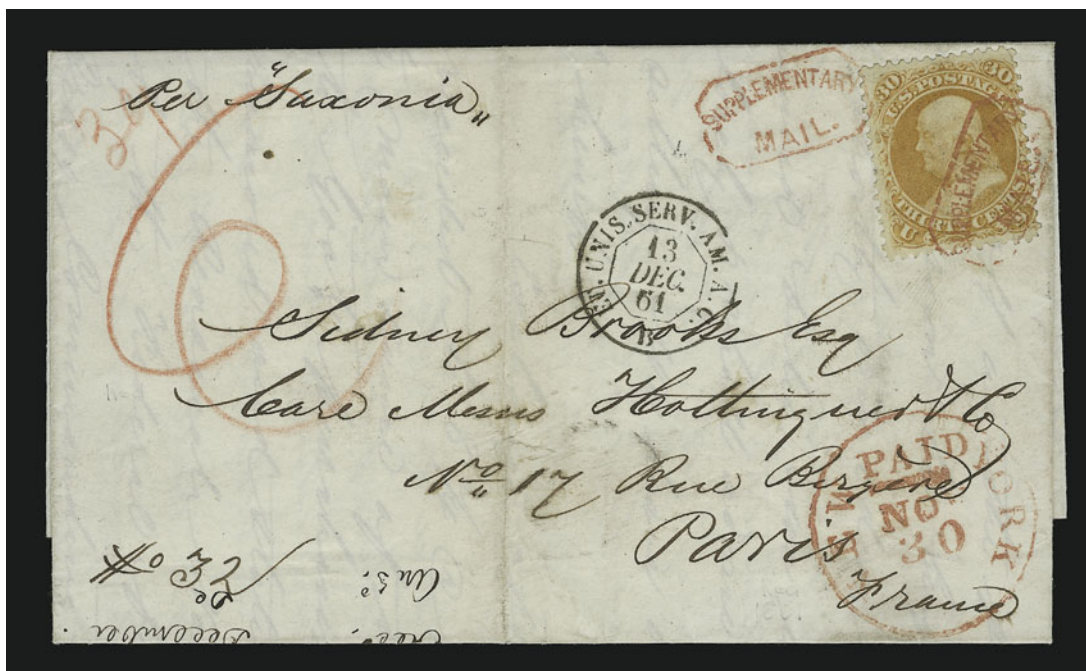 Per "Saxonia"
SUPPLEMENTARY
MAIL.
30 30
U.S. POSTAGE
THIRTY CENTS
U S
SUPPLEMENTARY
ET. UNIS. SERV. AM. A. C.
13
DEC.
61
B
Sidney Brooks Esq
Care Messrs Hottinguer & Co
No 17 Rue Bergère
Paris
France
NEW YORK
PAID
NOV
30
No 32
Recd.
December
Ansd.